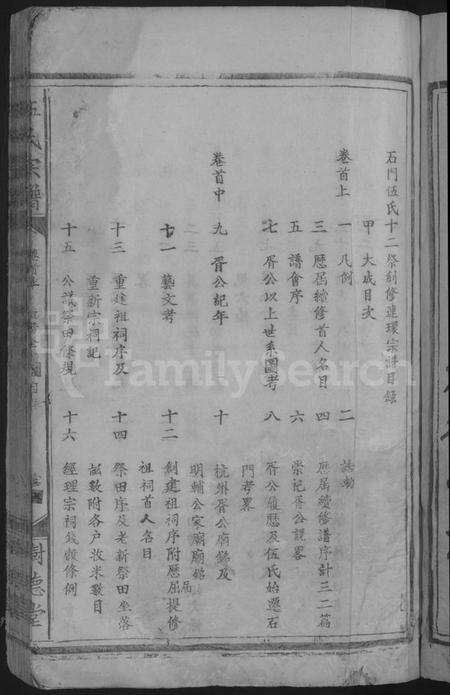 石門伍氏十二祭創修連環宗譜目錄
甲 大成目次
卷首上 一 凡例 二
三 歷屆續修首人名目 四 歷屆續修譜序計三二篇
五 譜會序 六 崇祀胥公說畧
七 胥公以上世系圖考 八 胥公履歷及伍氏始遷石
門考畧
卷首中 九 胥公記年 十 杭州胥公廟錄及
明輔公家廟廟錄
十一 藝文考 十二 創建祖祠序附歷屆提修
祖祠首人名目
十三 重建祖祠序及 十四 祭田序及老新祭田坐落
重新宗祠記 畝數附各戶收米數目
十五 公議祭田條規 十六 經理宗祠錢穀條例
伍氏宗譜
樹德堂
FamilySearch